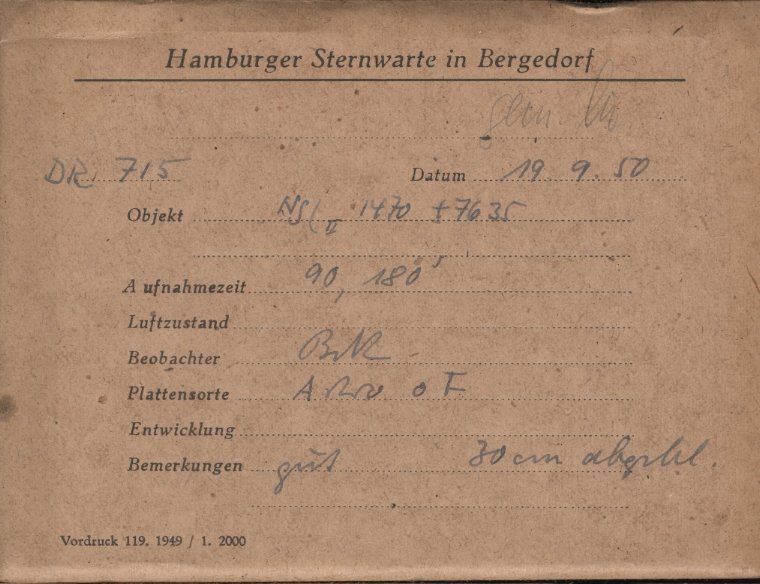 Hamburger Sternwarte in Bergedorf
DR 715 Datum 19 9. 50
Objekt II 1470 +7635
Aufnahmezeit 90, 180s
Luftzustand
Beobachter
Plattensorte Astro o F
Entwicklung
Bemerkungen gut 30cm
Vordruck 119. 1949 / 1. 2000